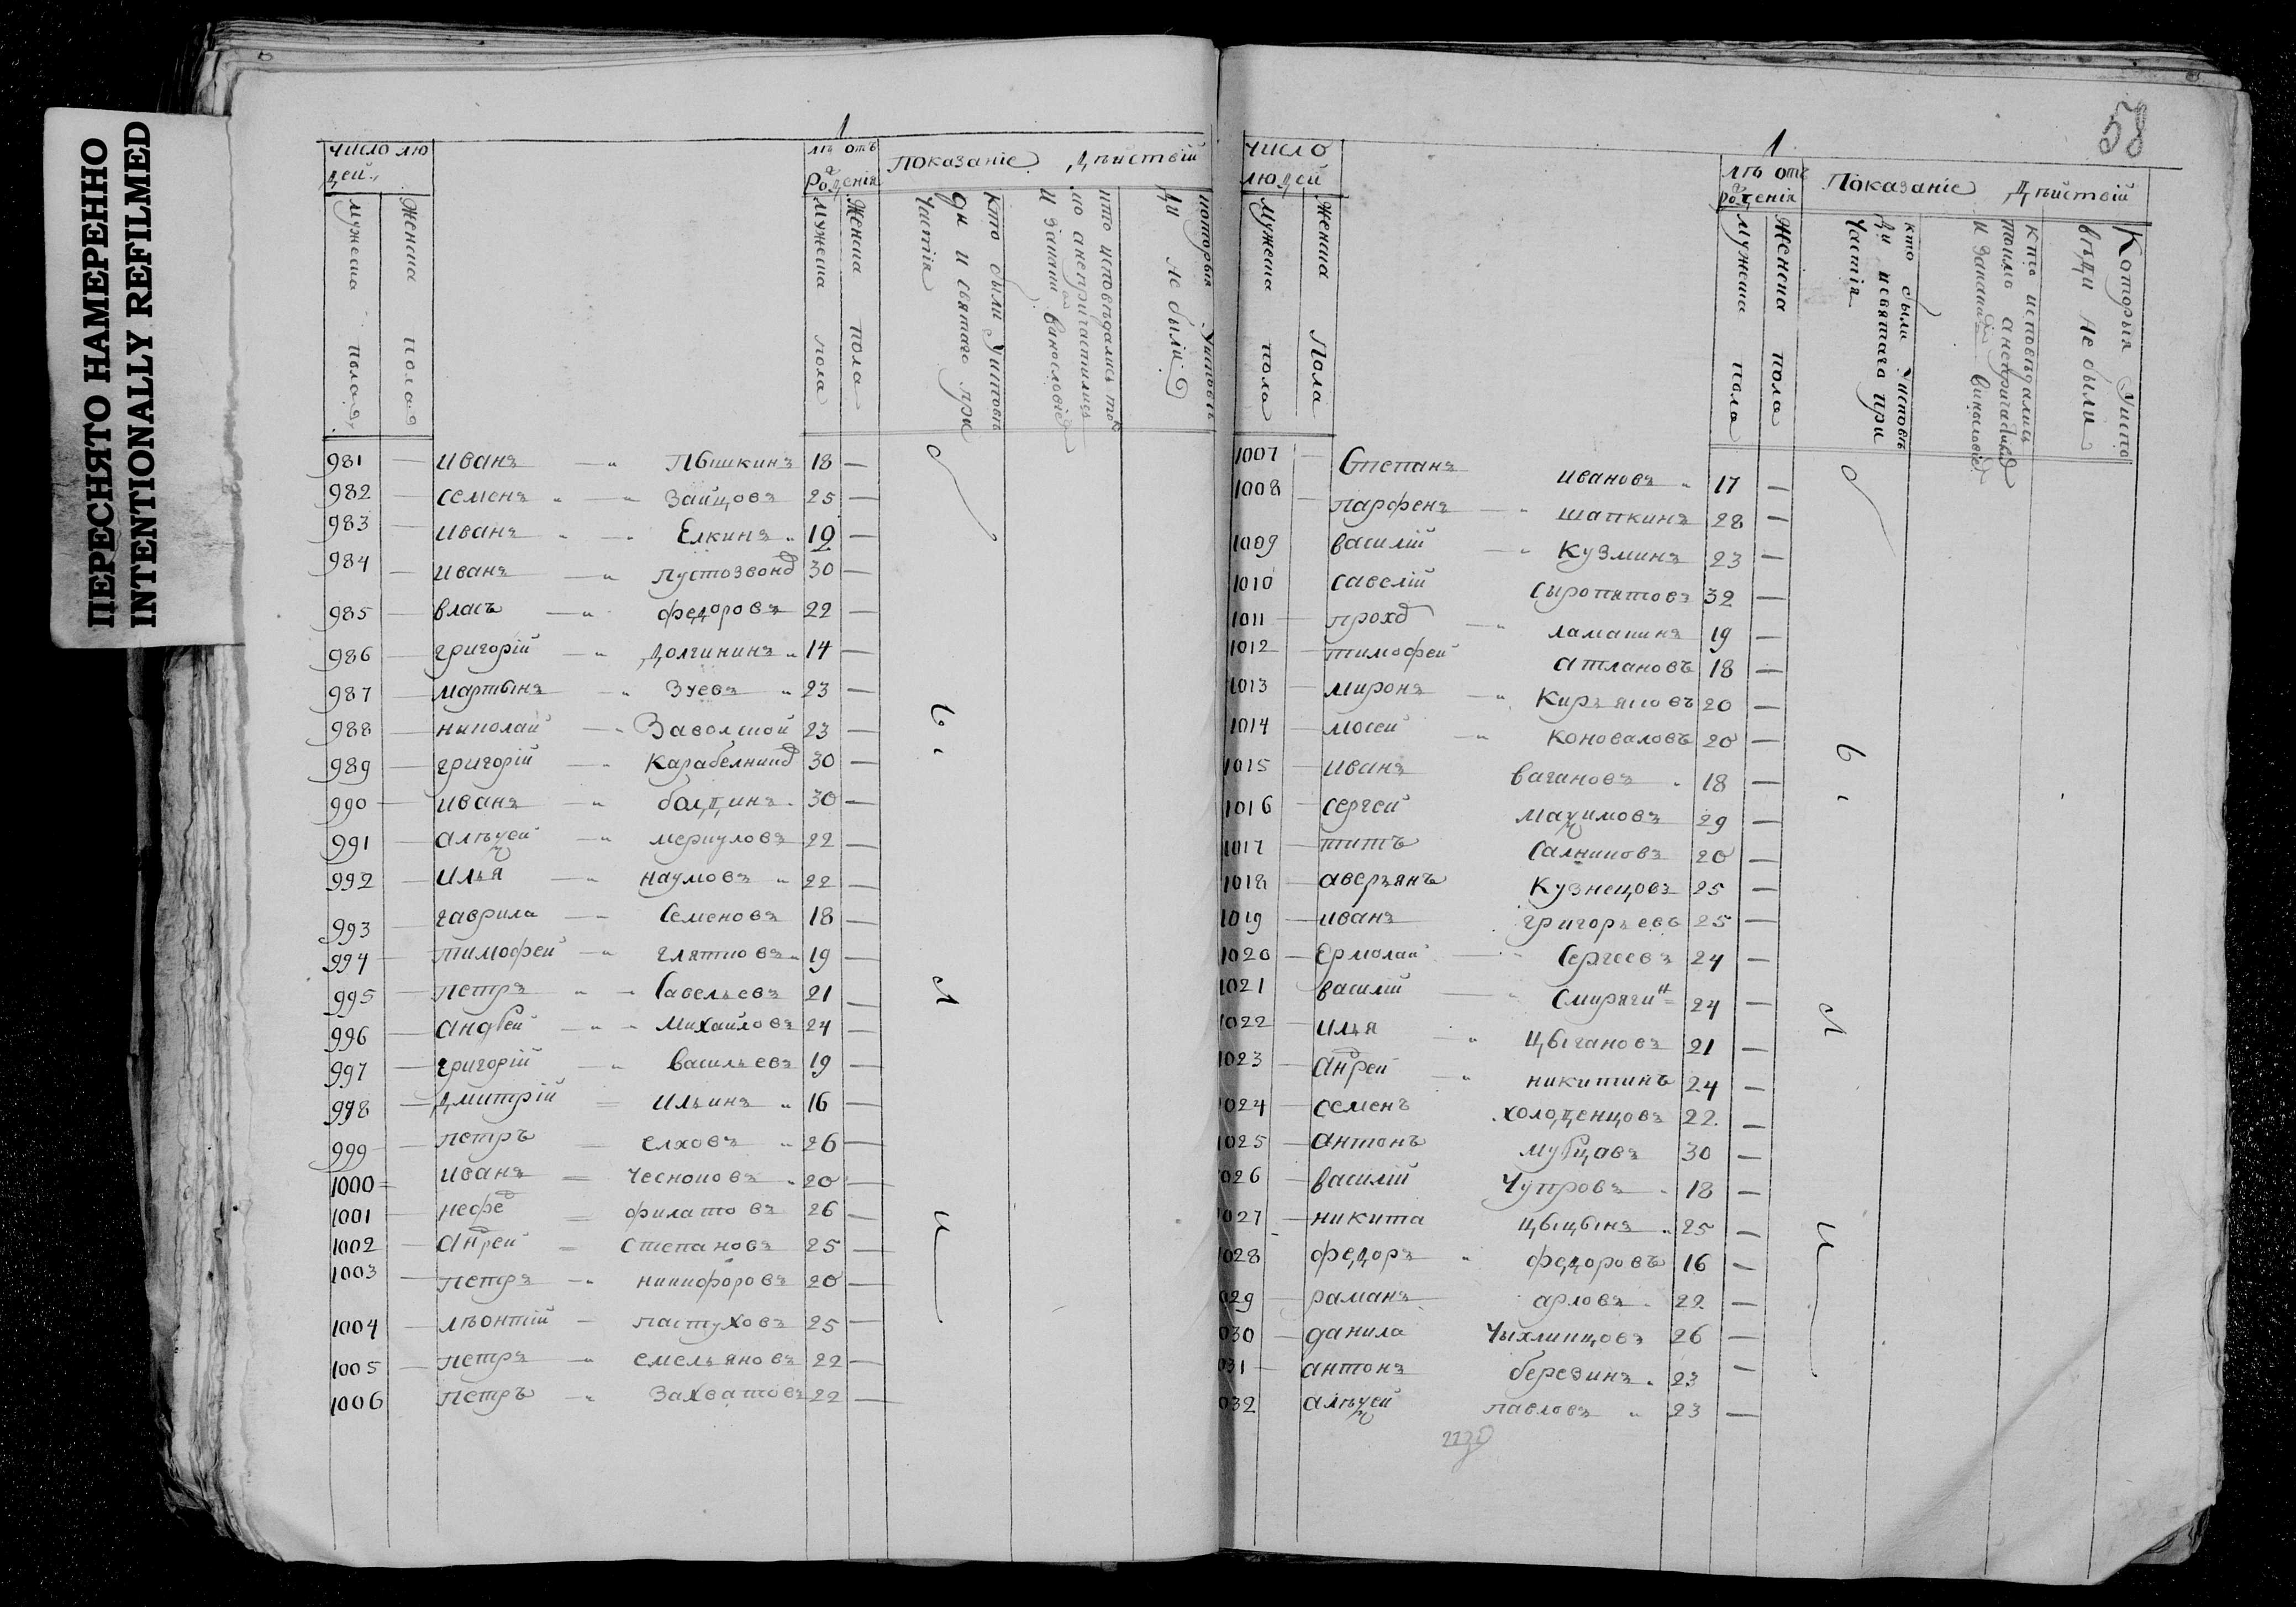 ПЕРЕСНЯТО НАМЕРЕННО
INTENTIONALLY REFILMED
1
число лю
дей
мужеска пола
Женска пола
лѣ отъ
рожденiя
мужеска пола
Женска пола
Показанiе дѣиствiй
кто были Уисповѣ
ди и святаго при
частiя
кто исповѣдались то
ко анепричастились
и закаким винословiем
которыя Уисповѣ
ди не были
981 — иванъ — Пышкинъ 18 —
982 — семенъ — Зайцовъ 25 —
983 — иванъ — Елкинъ 19 —
984 — иванъ — пустозвонъ 30 —
985 — власъ — федоровъ 22 —
986 — григорiй — долгининъ 14 —
987 — мартынъ — Зуевъ 23 —
988 — николай — Заволской 23 —
989 — григорiй — Карабелникъ 30 —
990 — иванъ — болдинъ 30 —
991 — алѣѯей — меркуловъ 22 —
992 — илья — наумовъ 22 —
993 — гаврила — Семеновъ 18 —
994 — тимофей — глятковъ 19 —
995 — петръ — Савельевъ 21 —
996 — андрей — михаиловъ 24 —
997 — григорiй — васильевъ 19 —
998 — дмитрiй — ильинъ 16 —
999 — петръ — елховъ 26 —
1000 — иванъ — чесноковъ 20 —
1001 — нефед — филатовъ 26 —
1002 — андрей — степановъ 25 —
1003 — петръ — никифоровъ 20 —
1004 — лѣонтiй — пастуховъ 25 —
1005 — петръ — емельяновъ 22 —
1006 — петръ — Захватовъ 22 —
б
ы
л
и
58
1
число
людей
мужеска пола
Женска Пола
лѣ отъ
рожденiя
мужеска пола
Женска пола
Показанiе дѣйствiй
кто были Уисповѣ
ди исвятага при
частiя
кто исповѣдались
токмо анепричастил
и закаким винословiем
Которыя Уиспо
вѣди не были
1007 — Степанъ ивановъ 17 —
1008 — парфенъ — шапкинъ 28 —
1009 василiй — Кузминъ 23 —
1010 савелiй Сыропятовъ 32 —
1011 — прохъ — ламакинъ 19 —
1012 — тимофей атлановъ 18 —
1013 — миронъ — Кирьяновъ 20 —
1014 — мосей — Коноваловъ 20 —
1015 — иванъ вагановъ 18 —
1016 — сергей маѯимовъ 29 —
1017 — титъ Салниковъ 20 —
1018 — аверьянъ Кузнецовъ 25 —
1019 — иванъ григорьевъ 25 —
1020 — Ермолай — Сергеевъ 24 —
1021 василiй — Смирягин 24 —
1022 — илья цыгановъ 21 —
1023 — андрей никитинъ 24 —
1024 — семенъ холоденцовъ 22 —
1025 — антонъ мурцавъ 30 —
1026 — василiй Чупровъ 18 —
1027 — никита цыцынъ 25 —
1028 федоръ федоровъ 16 —
029 — раманъ арловъ 22 —
030 — данила Чыхлинцовъ 26 —
031 — антонъ березинъ 23 —
032 алѣѯей павловъ 23 —
б
ы
л
и